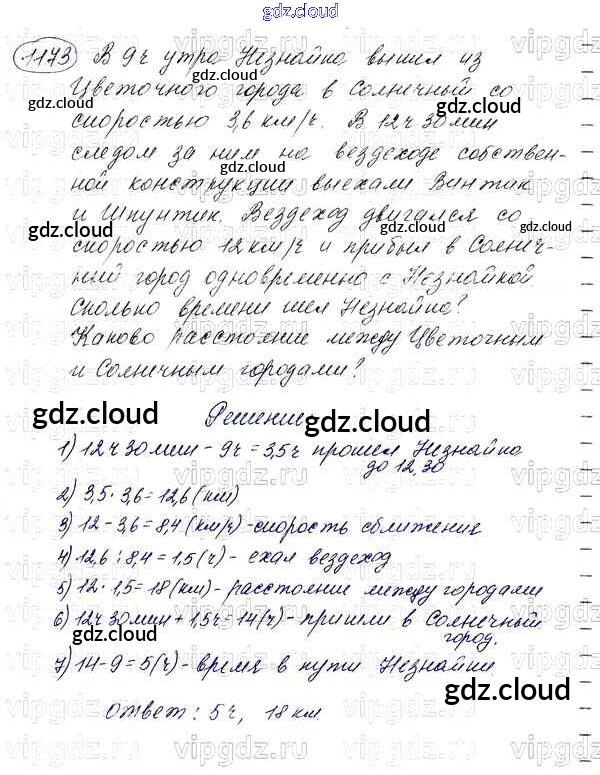 gdz.cloud
1173) В 9ч утра Незнайка вышел из
Цветочного города в Солнечный со
скоростью 3,6 км/ч. В 12ч 30 мин
следом за ним на вездеходе собствен-
ной конструкции выехали Винтик
и Шпунтик. Вездеход двигался со
скоростью 12 км/ч и прибыл в Солнеч-
ный город одновременно с Незнайкой
Сколько времени шел Незнайка?
Каково расстояние между Цветочным
и Солнечным городами?
Решение
1) 12ч 30 мин – 9ч = 3,5ч прошел Незнайка
до 12,30
2) 3,5 · 3,6 = 12,6 (км)
3) 12 – 3,6 = 8,4 (км/ч) - скорость сближения
4) 12,6 : 8,4 = 1,5 (ч) - ехал вездеход
5) 12 · 1,5 = 18 (км) - расстояние между городами
6) 12ч 30 мин + 1,5ч = 14 (ч) - пришли в Солнечный
город.
7) 14 – 9 = 5 (ч) - время в пути Незнайки
Ответ: 5 ч, 18 км